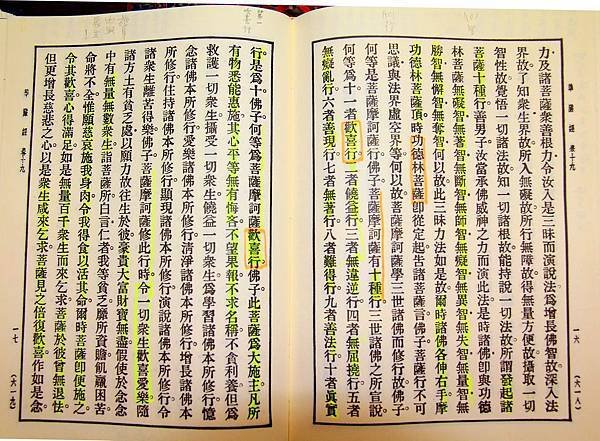 華嚴經 卷十九
力及諸菩薩眾善根力令汝入是三昧而演說法為增長佛智故深入法
界故了知眾生界故所入無礙故所行無障故得無量方便故攝取一切
智性故覺悟一切諸法故知一切諸根故能持說一切法故所謂發起諸
菩薩十種行善男子汝當承佛威神之力而演此法是時諸佛卽與功德
林菩薩無礙智無著智無斷智無師智無癡智無異智無失智無量智無
勝智無懈智無奪智何以故此三昧力法如是故爾時諸佛各伸右手摩
功德林菩薩頂時功德林菩薩卽從定起告諸菩薩言佛子菩薩行不可
思議與法界虛空界等何以故菩薩摩訶薩學三世諸佛而修行故佛子
何等是菩薩摩訶薩行佛子菩薩摩訶薩有十種行三世諸佛之所宣說
何等為十一者歡喜行二者饒益行三者無違逆行四者無屈撓行五者
無癡亂行六者善現行七者無著行八者難得行九者善法行十者眞實
一六 (六一八)
行是為十佛子何等為菩薩摩訶薩歡喜行佛子此菩薩為大施主凡所
有物悉能惠施其心平等無有悔吝不望果報不求名稱不貪利養但為
救護一切眾生攝受一切眾生饒益一切眾生為學習諸佛本所修行憶
念諸佛本所修行愛樂諸佛本所修行清淨諸佛本所修行增長諸佛本
所修行住持諸佛本所修行顯現諸佛本所修行演說諸佛本所修行令
諸眾生離苦得樂佛子菩薩摩訶薩修此行時令一切眾生歡喜愛樂隨
諸方土有貧乏處以願力故往生於彼豪貴大富財寶無盡假使於念念
中有無量無數眾生詣菩薩所白言仁者我等貧乏靡所資贍飢羸困苦
命將不全惟願慈哀施我身肉令我得食以活其命爾時菩薩卽便施之
令其歡喜心得滿足如是無量百千眾生而來乞求菩薩於彼曾無退怯
但更增長慈悲之心以是眾生咸來乞求菩薩見之倍復歡喜作如是念
華嚴經 卷十九
一七 (六一九)